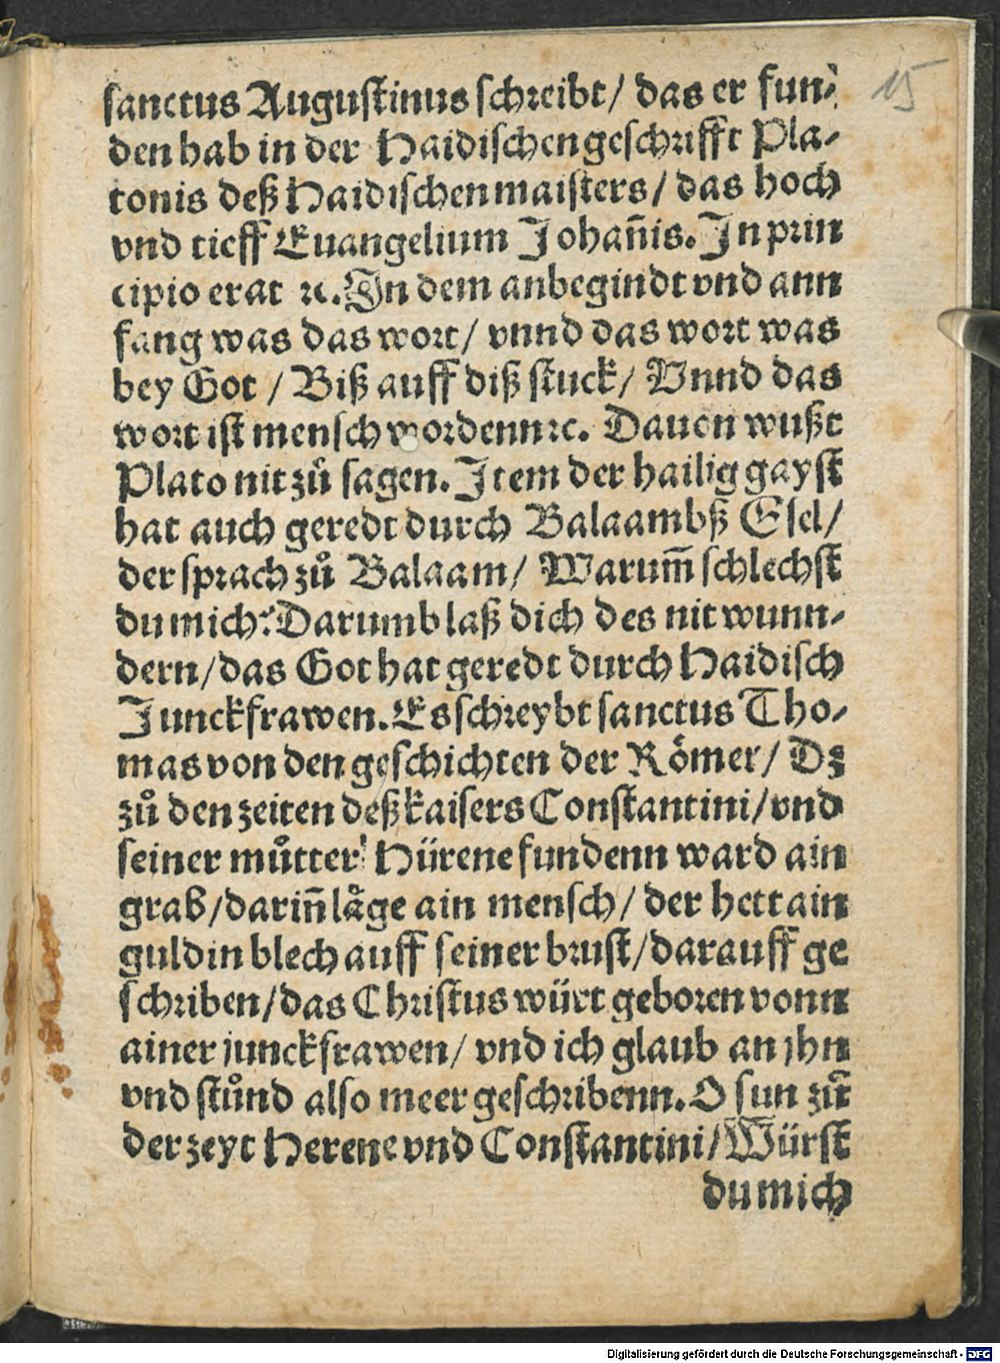 15
sanctus Augustinus schreibt/ das er fun-
den hab in der Haidischen geschrifft Pla-
tonis deß Haidischen maisters/ das hoch
vnd tieff Euangelium Johan̄is. In prin
cipio erat ⁊c. In dem anbegindt vnd ann
fang was das wort/ vnnd das wort was
bey Got / Biß auff diß stuck/ Vnnd das
wort ist mensch wordenn ⁊c. Dauon wußt
Plato nit zů sagen. Item der hailig gayst
hat auch geredt durch Balaambß Esel/
der sprach zů Balaam/ Warum̄ schlechst
du mich? Darumb laß dich des nit wunn-
dern/ das Got hat geredt durch Haidisch
Junckfrawen. Es schreybt sanctus Tho-
mas von den geschichten der Römer/ Dz
zů den zeiten deß kaisers Constantini/ vnd
seiner můtter Hürene fundenn ward ain
grab/ darin̄ läge ain mensch/ der hett ain
guldin blech auff seiner brust/ darauff ge
schriben/ das Christus würt geboren vonn
ainer junckfrawen/ vnd ich glaub an jhn
vnd stůnd also meer geschribenn. O sun zů
der zeyt Herene vnd Constantini/ Würst
du mich
Digitalisierung gefördert durch die Deutsche Forschungsgemeinschaft - DFG